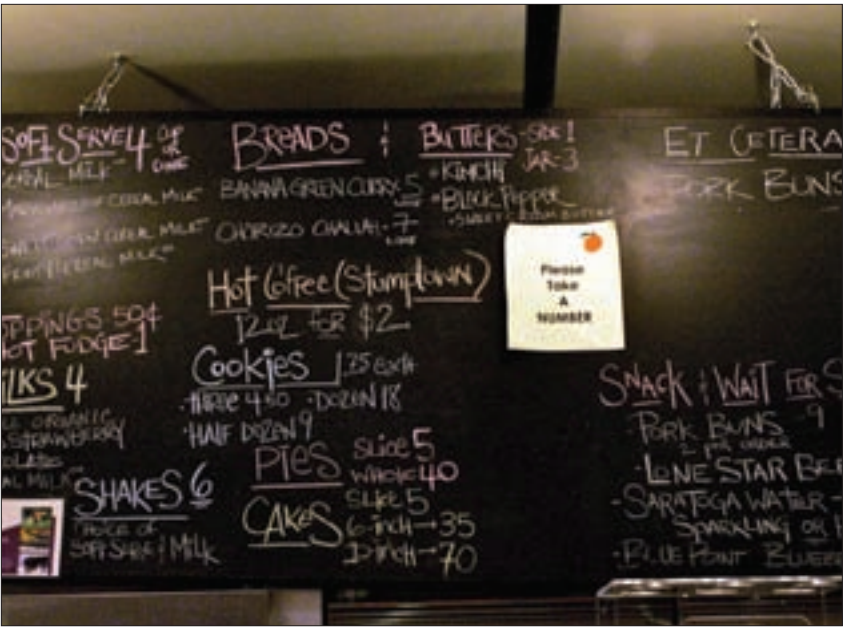 SOFT SERVE 4 CUP OR CONE
CEREAL MILK
CEREAL MILK
CEREAL MILK
CEREAL MILK
TOPPINGS 50¢
HOT FUDGE 1
MILKS 4
ORGANIC
STRAWBERRY
MILK
SHAKES 6
CHOICE OF
SOFT SERVE & MILK
BREADS &
BANANA GREEN CURRY-5
CHORIZO CHALLAH-7
BUTTERS-SIDE 1
JAR-3
KIMCHI
BLACK PEPPER
HOT COFFEE (STUMPTOWN)
12 OZ FOR $2
COOKIES
THREE 4.50 · DOZEN 18
HALF DOZEN 9
PIES SLICE 5
WHOLE 40
CAKES SLICE 5
6-INCH→35
→70
Please
Take
A
NUMBER
ET CETERA
PORK BUNS
SNACK & WAIT FOR S
PORK BUNS 9
2 PER ORDER
LONE STAR BEE
SARATOGA WATER -
SPARKLING OR
BLUE POINT BLUEBE